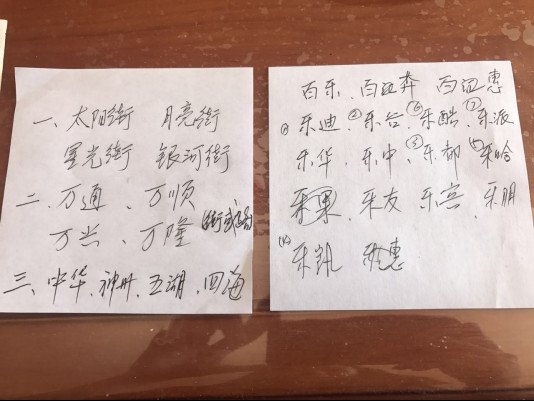 一、太阳街 月亮街
星光街 银河街
二、万通、万顺
万兴、万隆(街或路)
三、中华、神州、五湖、四海
百乐、百汇奔 百汇惠
①乐迪、②乐台、⑥乐酷、⑦乐派
乐华、乐中、③乐都、⑤乐哈
乐果 乐友 乐宾、乐朋
⑷乐凯 乐惠